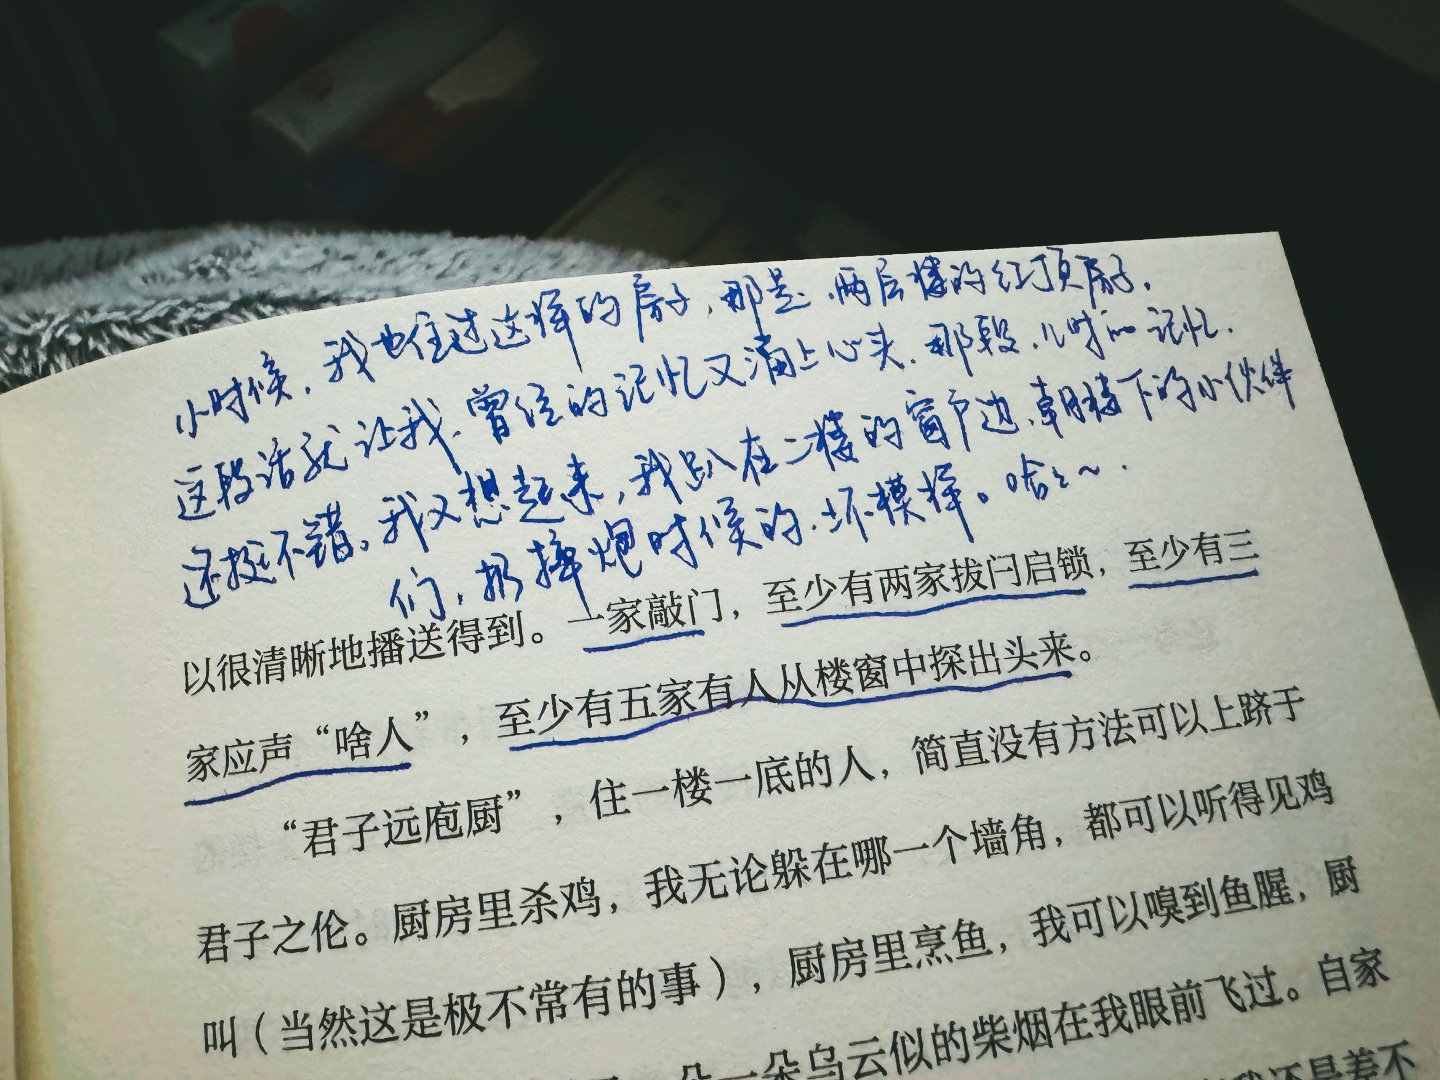 小时候，我也住过这样的房子，那是，两层楼的红顶房子，
这段话就让我，曾经的记忆又涌上心头，那段，儿时的记忆，
还挺不错。我又想起来，我趴在二楼的窗户边，朝楼下的小伙伴
们，扔摔炮时候的，坏模样。哈哈～.
以很清晰地播送得到。一家敲门，至少有两家拔闩启锁，至少有三
家应声“啥人”，至少有五家有人从楼窗中探出头来。
“君子远庖厨”，住一楼一底的人，简直没有方法可以上跻于
君子之伦。厨房里杀鸡，我无论躲在哪一个墙角，都可以听得见鸡
叫（当然这是极不常有的事），厨房里烹鱼，我可以嗅到鱼腥，厨
朵一朵乌云似的柴烟在我眼前飞过。自家
我还是差不